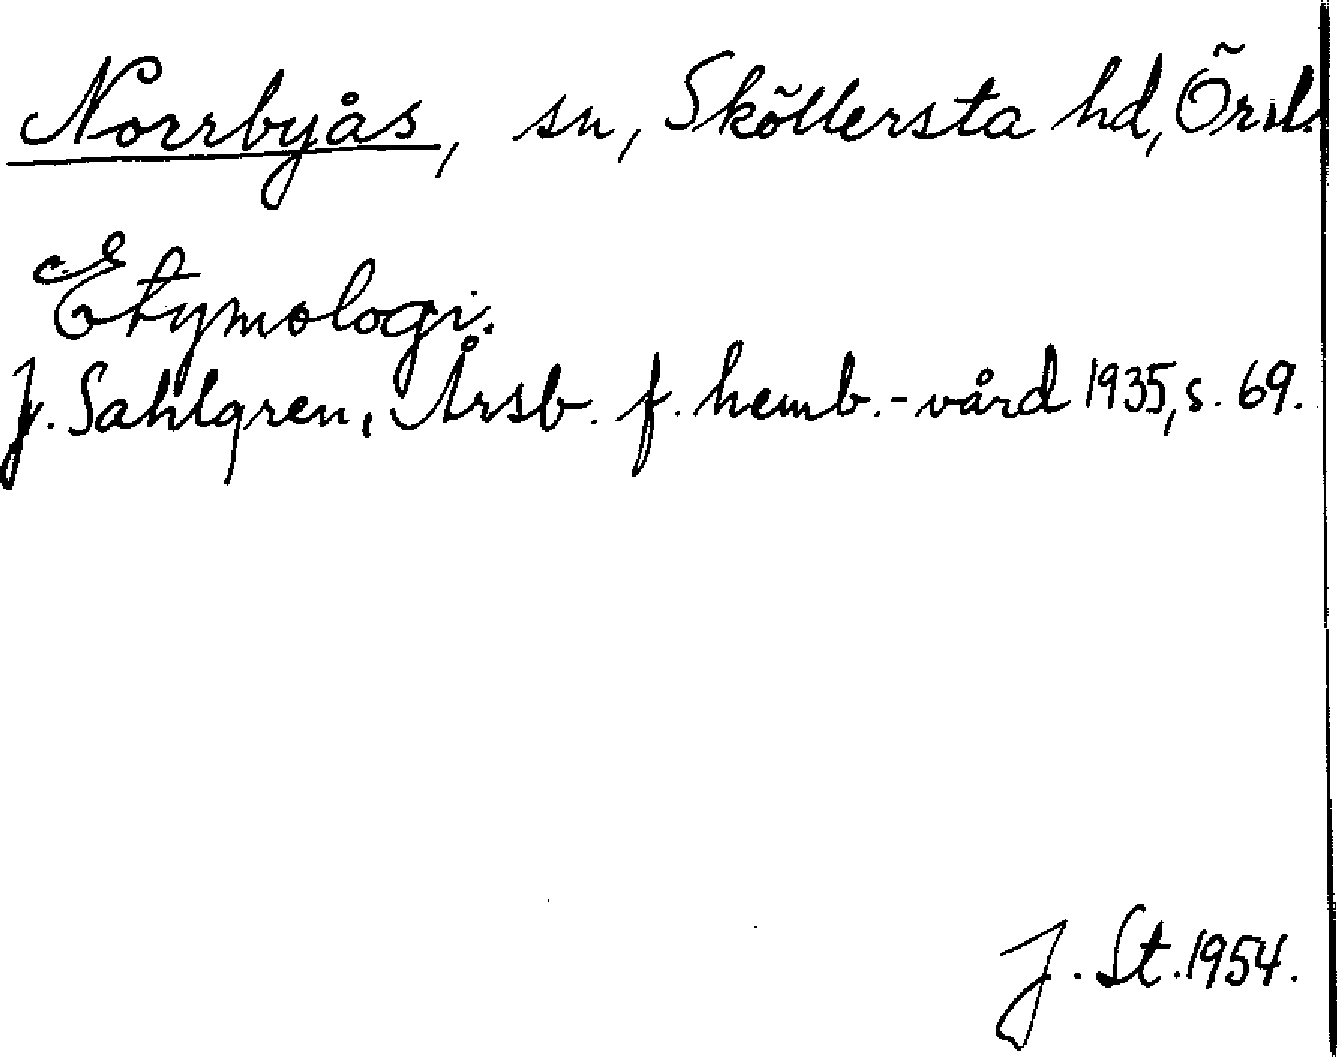 Norrbyås, sn, Sköllersta hd, Örebr.
Etymologi.
J. Sahlgren, Årsb. f. hemb.-vård 1935, s. 69.
J. St. 1954.